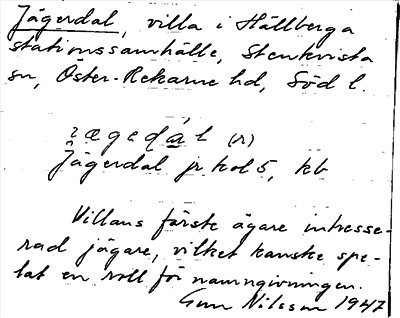 Jägerdal, villa i Hällberga
stationssamhälle, Stenkvista
sn, Öster-Rekarne hd, Söd l.
Jägerdal jr kol 5, kb
Villans förste ägare intresse-
rad jägare, vilket kanske spe-
lat en roll för namngivningen.
Gun Nilsson 1947